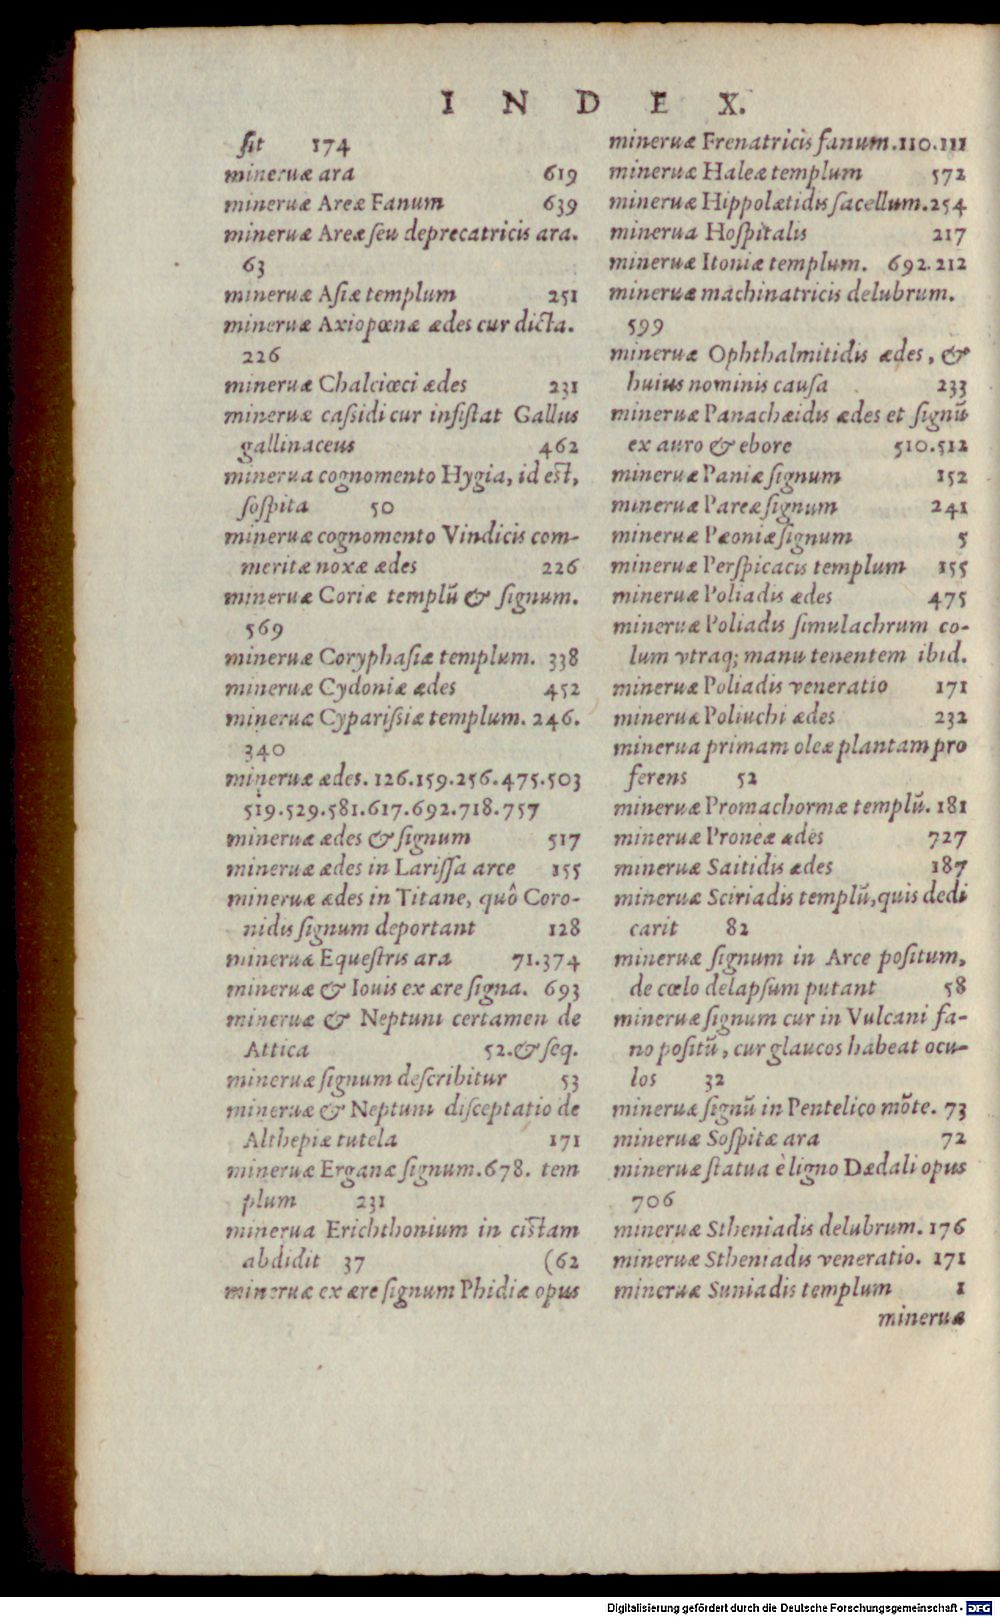 INDEX.
ſit 174
mineruæ ara 619
mineruæ Areæ Fanum 639
mineruæ Areæ ſeu deprecatricis ara.
63
mineruæ Aſiæ templum 251
mineruæ Axiopœnæ ædes cur dicta.
226
mineruæ Chalciœci ædes 231
mineruæ caſsidi cur inſiſtat Gallus
gallinaceus 462
minerua cognomento Hygia, id eſt,
ſoſpita 50
mineruæ cognomento Vindicis com-
meritæ noxæ ædes 226
mineruæ Coriæ templũ & ſignum.
569
mineruæ Coryphaſiæ templum. 338
mineruæ Cydoniæ ædes 452
mineruæ Cypariſsiæ templum. 246.
340
mineruæ ædes. 126.159.256.475.503
519.529.581.617.692.718.757
mineruæ ædes & ſignum 517
mineruæ ædes in Lariſſa arce 155
mineruæ ædes in Titane, quô Coro-
nidis ſignum deportant 128
mineruæ Equeſtris ara 71.374
mineruæ & Iouis ex ære ſigna. 693
mineruæ & Neptuni certamen de
Attica 52.& ſeq.
mineruæ ſignum deſcribitur 53
mineruæ & Neptuni diſceptatio de
Althepiæ tutela 171
mineruæ Erganæ ſignum.678. tem
plum 231
minerua Erichthonium in ciſtam
abdidit 37 (62
mineruæ ex ære ſignum Phidiæ opus
mineruæ Frenatricis fanum.110.111
mineruæ Haleæ templum 572
mineruæ Hippolætidis ſacellum.254
minerua Hoſpitalis 217
mineruæ Itoniæ templum. 692.212
mineruæ machinatricis delubrum.
599
mineruæ Ophthalmitidis ædes, &
huius nominis cauſa 233
mineruæ Panachæidis ædes et ſignũ
ex auro & ebore 510.512
mineruæ Paniæ ſignum 152
mineruæ Pareæ ſignum 241
mineruæ Pæoniæ ſignum 5
mineruæ Perſpicacis templum 155
mineruæ Poliadis ædes 475
mineruæ Poliadis ſimulachrum co-
lum vtraq; manu tenentem ibid.
mineruæ Poliadis veneratio 171
mineruæ Poliuchi ædes 232
minerua primam oleæ plantam pro
ferens 52
mineruæ Promachormæ templũ. 181
mineruæ Proneæ ædes 727
mineruæ Saitidis ædes 187
mineruæ Sciriadis templũ, quis dedi
carit 82
mineruæ ſignum in Arce poſitum,
de cœlo delapſum putant 58
mineruæ ſignum cur in Vulcani fa-
no poſitũ, cur glaucos habeat ocu-
los 32
mineruæ ſignũ in Pentelico mõte. 73
mineruæ Soſpitæ ara 72
mineruæ ſtatua è ligno Dædali opus
706
mineruæ Stheniadis delubrum. 176
mineruæ Stheniadis veneratio. 171
mineruæ Suniadis templum 1
mineruæ
Digitalisierung gefördert durch die Deutsche Forschungsgemeinschaft - DFG